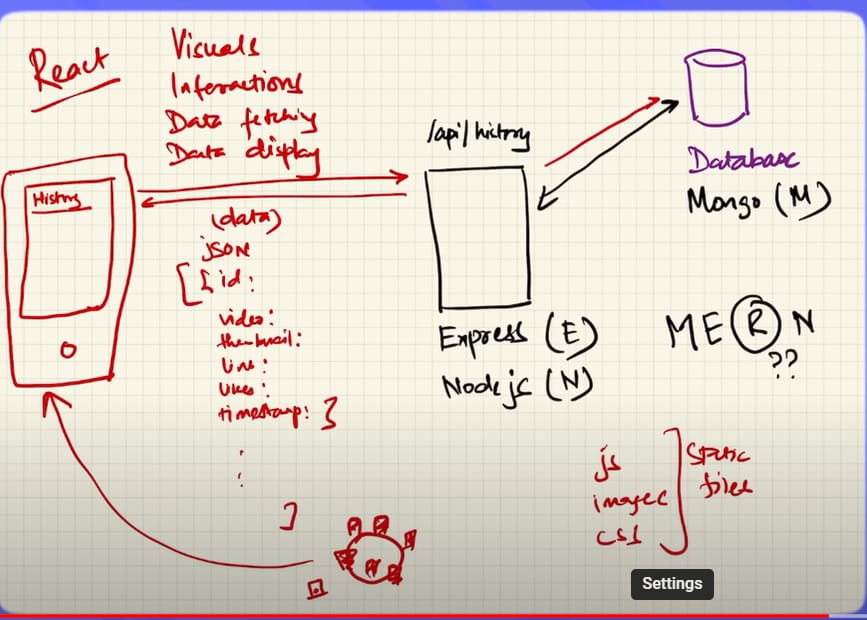 React
Visuals
Interactions
Data fetching
Data display
History
(data)
json
[ { id:
video:
thumbnail:
link:
likes:
timestamp: }
:
]
/api/history
Express (E)
Node js (N)
Database
Mongo (M)
MERN
??
js
images
css
static
files
Settings